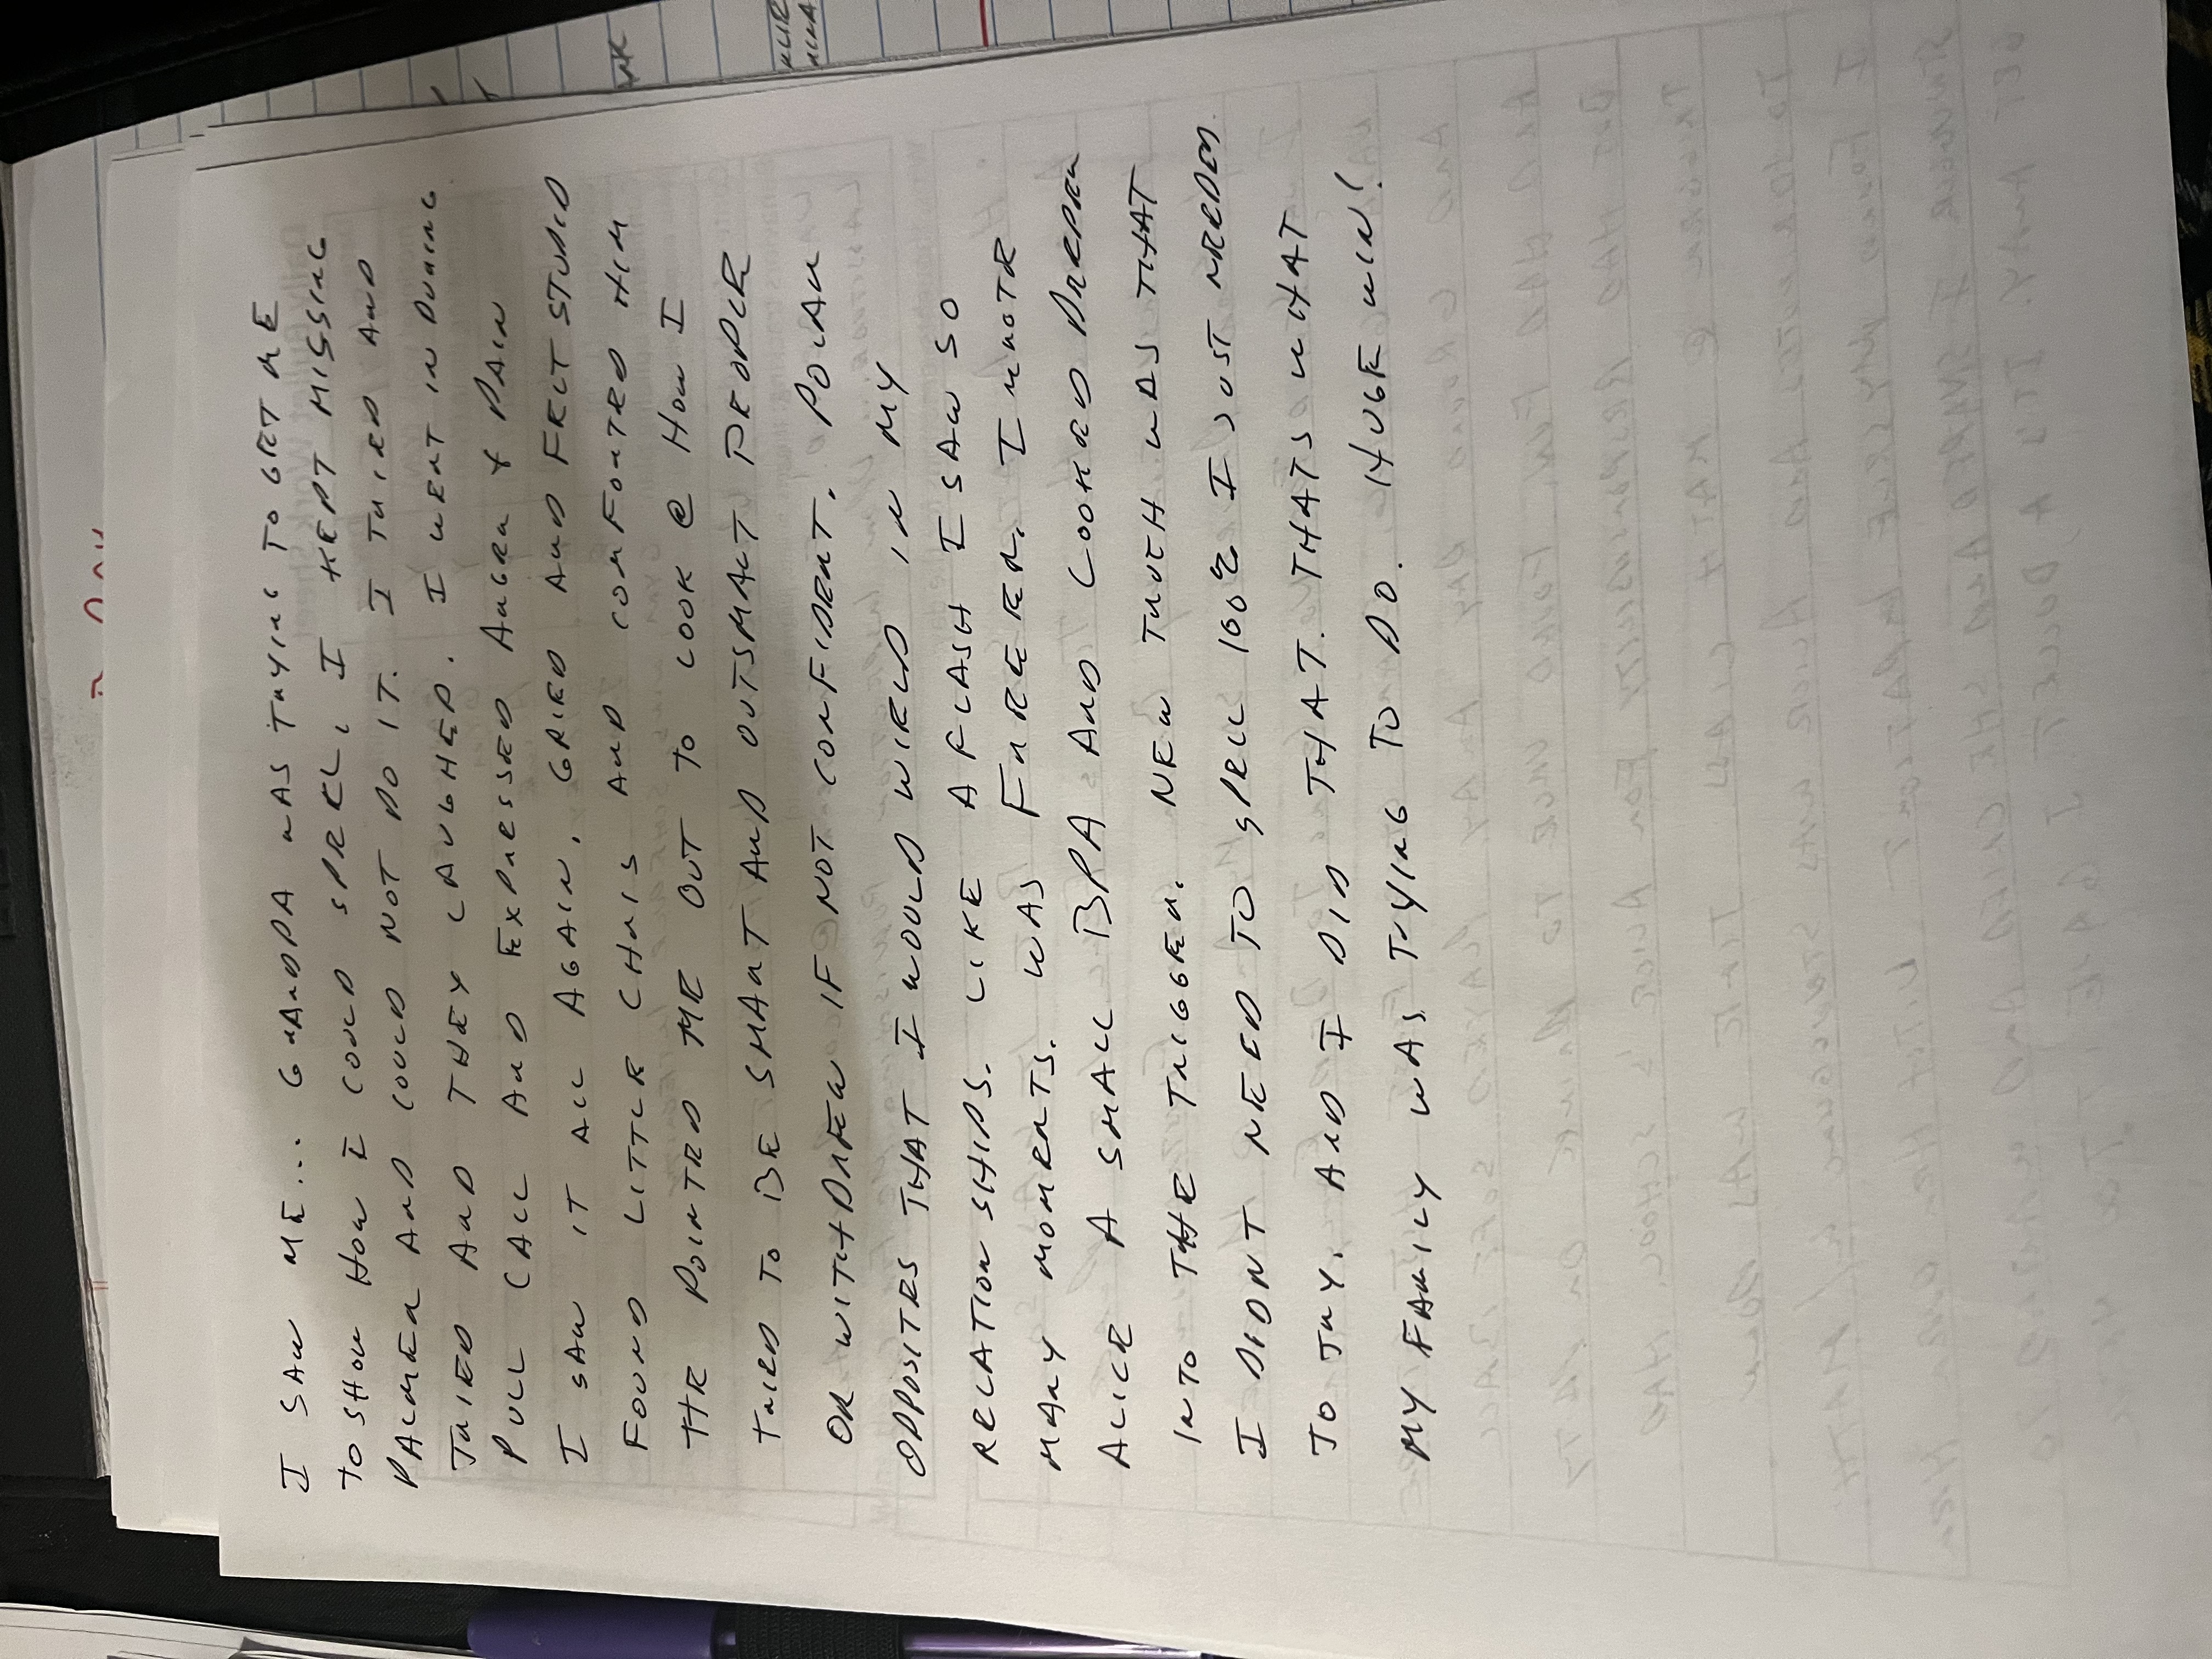 I SAW ME... GRANDPA WAS TRYING TO GET ME
TO SHOW HOW I COULD SPELL, I KEPT MISSING
PALMER AND COULD NOT DO IT. I TRIED AND
TRIED AND THEY LAUGHED. I WENT IN DURING
PULL CALL AND EXPRESSED ANGER & PAIN
I SAW IT ALL AGAIN, GRIED AND FELT STUPID
FOUND LITTLE CHRIS AND COMFORTED HIM
THE POINTED ME OUT TO LOOK @ HOW I
TRIED TO BE SMART AND OUTSMART PEOPLE
OR WITHDREW IF NOT CONFIDENT. POLAR
OPPOSITES THAT I WOULD WIELD IN MY
RELATIONSHIPS. LIKE A FLASH I SAW SO
MANY MOMENTS. WAS FREEER. I WROTE
ALICE A SMALL BPA AND LOOKED DEEPER
INTO THE TRIGGER. NEW TRUTH WAS THAT
I DIDNT NEED TO SPELL 100% I JUST NEEDED
TO TRY. AND I DID THAT. THATS WHAT
MY FAMILY WAS TRYING TO DO. HUGE WIN!